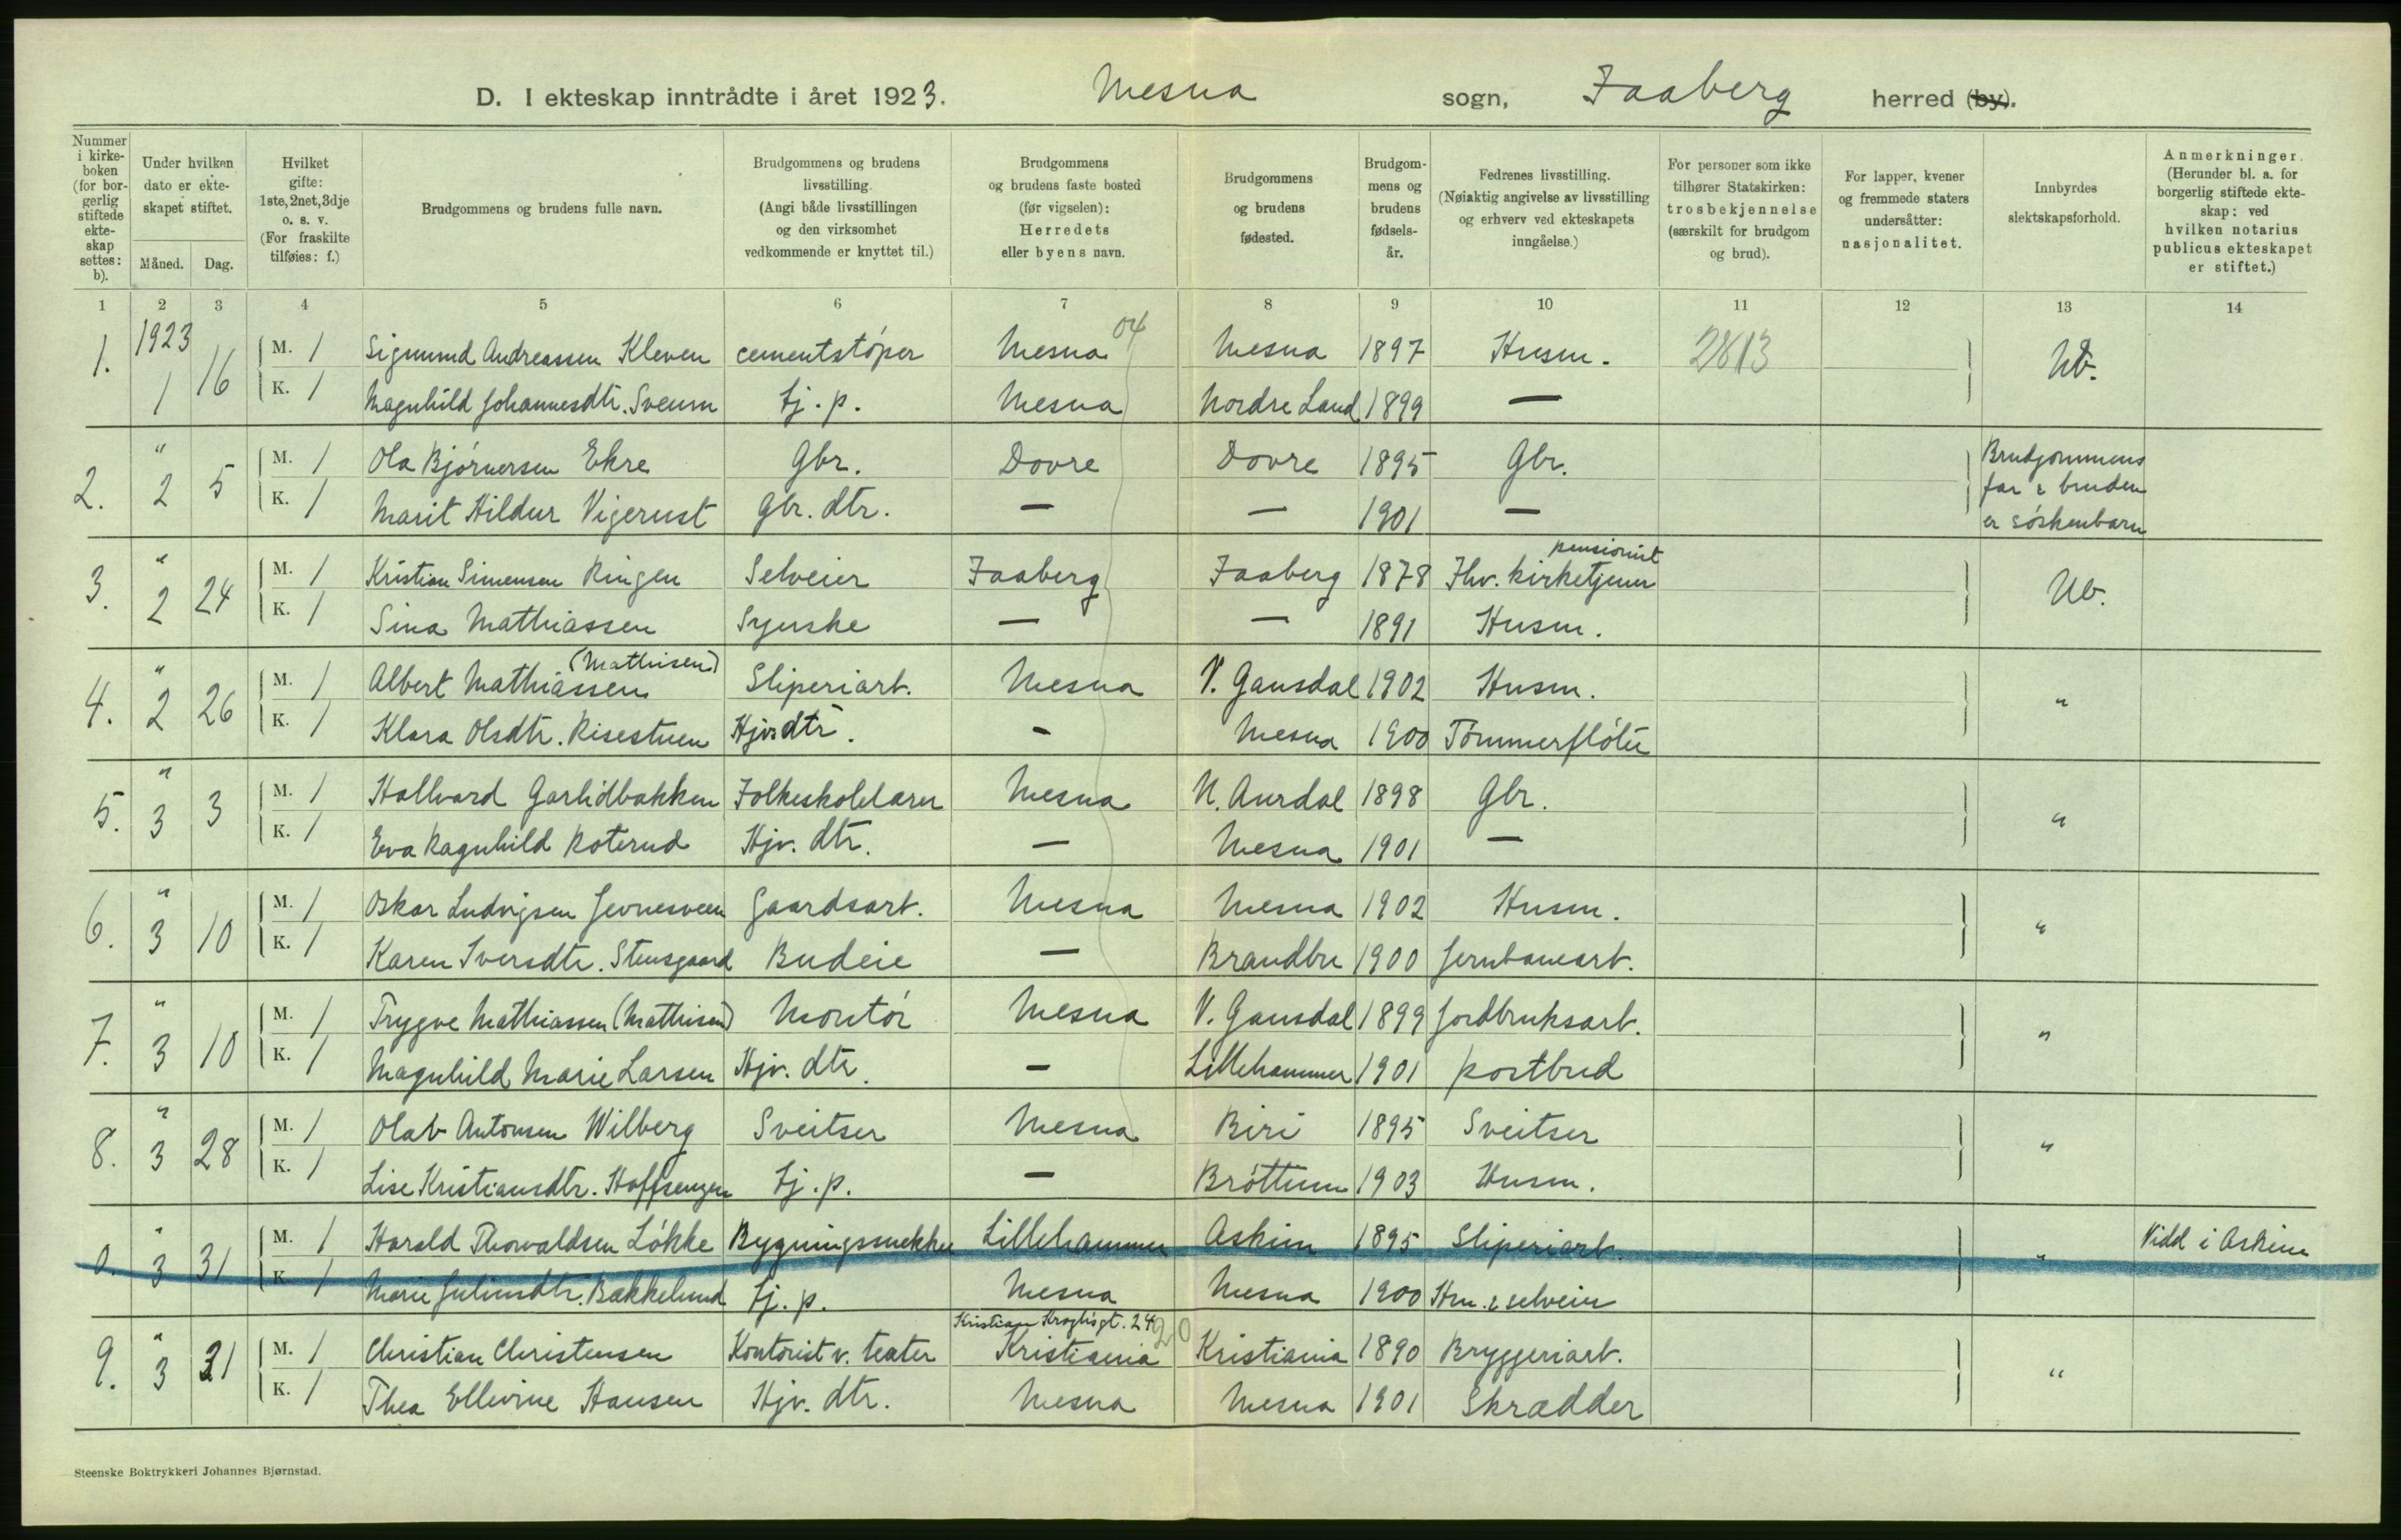 D. I ekteskap inntrådte i året 1923. Mesna sogn, Faaberg herred (by).
Nummer i kirkeboken (for borgerlig stiftede ekteskap settes: b).
Under hvilken dato er ekteskapet stiftet.
Måned. Dag.
Hvilket gifte: 1ste, 2net, 3dje o. s. v. (For fraskilte tilføies: f.)
Brudgommens og brudens fulle navn.
Brudgommens og brudens livsstilling. (Angi både livsstillingen og den virksomhet vedkommende er knyttet til.)
Brudgommens og brudens faste bosted (før vigselen): Herredets eller byens navn.
Brudgommens og brudens fødested.
Brudgommens og brudens fødselsår.
Fedrenes livsstilling. (Nøiaktig angivelse av livsstilling og erhverv ved ekteskapets inngåelse.)
For personer som ikke tilhører Statskirken: trosbekjennelse (særskilt for brudgom og brud).
For lapper, kvener og fremmede staters undersåtter: nasjonalitet.
Innbyrdes slektskapsforhold.
Anmerkninger. (Herunder bl. a. for borgerlig stiftede ekteskap: ved hvilken notarius publicus ekteskapet er stiftet.)
1 2 3 4 5 6 7 8 9 10 11 12 13 14
1. 1923 1 16 M. 1 Sigmund Andreassen Kleven cementstóper Mesna 04 Mesna 1897 Husm. 2813 Ub.
K. 1 Magnhild Johannesdtr. Sveum tj. p. Mesna Nordre Land 1899 —
2. " 2 5 M. 1 Ola Bjórnersen Ekre Gbr. Dovre Dovre 1895 Gbr. Brudgommens far & bruden er sóskenbarn
K. 1 Marit Hildur Vigerust gbr. dtr. — — 1901 —
3. " 2 24 M. 1 Kristian Simensen Ringen Selveier Faaberg Faaberg 1878 Fhv. kirketjener pensionist Ub.
K. 1 Sina Mathiassen Syerske — — 1891 Husm.
4. " 2 26 M. 1 Albert Mathiassen (Mathisen) Sliperiarb. Mesna V. Gausdal 1902 Husm. "
K. 1 Klara Olsdtr. Risestuen Hjvs dtr. - Mesna 1900 Tómmerflóter
5. " 3 3 M. 1 Hallvard Garlidbakken Folkeskolelærer Mesna N. Aurdal 1898 Gbr. "
K. 1 Eva Ragnhild Roterud Hjv. dtr. — Mesna 1901 —
6. " 3 10 M. 1 Oskar Ludvigsen Jevnesveen Gaardsarb. Mesna Mesna 1902 Husm. "
K. 1 Karen Iversdtr. Stensgaard Budeie — Brandbu 1900 Jernbanearb.
7. " 3 10 M. 1 Trygve Mathiassen (Mathisen) Montór Mesna V. Gausdal 1899 Jordbruksarb. "
K. 1 Magnhild Marie Larsen Hjv. dtr. — Lillehammer 1901 postbud
8. " 3 28 M. 1 Olav Antonsen Wilberg Sveitser Mesna Biri 1895 Sveitser "
K. 1 Lise Kristiansdtr. Hoffsengen tj. p. — Bróttum 1903 Husm.
0. " 3 31 M. 1 Harald Thorvaldsen Lókke Bygningssnekker Lillehammer Askim 1895 Sliperiarb. " Vidd i Askim
K. 1 Marie Juliusdtr. Bakkelund tj. p. Mesna Mesna 1900 Hm. & selveier
9. " 3 31 M. 1 Christian Christensen Kontorist v. teater Kristian Kroghsgt. 24 Kristiania 20 Kristiania 1890 Bryggeriarb. "
K. 1 Thea Ellevine Hansen Hjv. dtr. Mesna Mesna 1901 Skrædder
Steenske Boktrykkeri Johannes Bjørnstad.